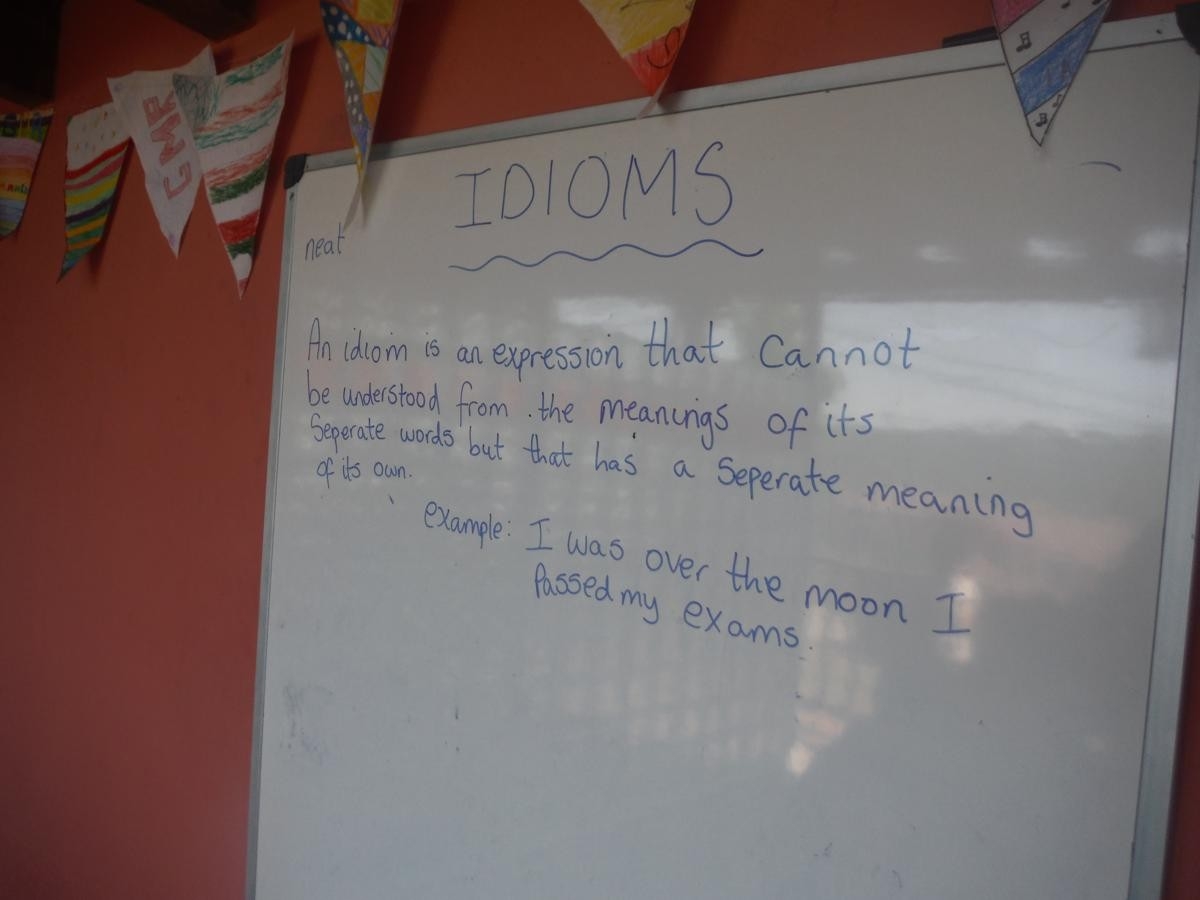 IDIOMS
neat
An idiom is an expression that cannot
be understood from the meanings of its
Seperate words but that has a Seperate meaning
of its own.
example: I was over the moon I
Passed my exams.
CMR